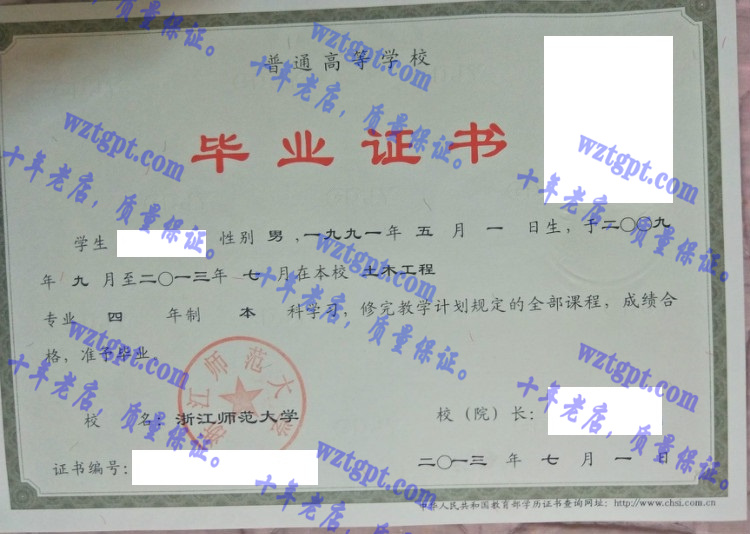 普通高等学校
毕业证书
学生 性别 男,一九九一年 五 月 一 日生,于二〇〇九
年 九 月至二〇一三年 七 月在本校 土木工程
专业 四 年制 本 科学习,修完教学计划规定的全部课程,成绩合
格,准予毕业
浙江师范大学
校 名:浙江师范大学 校(院)长:
证书编号: 二〇一三 年 七 月 一 日
中华人民共和国教育部学历证书查询网址:http://www.chsi.com.cn
wztgpt.com
十年老店,质量保证。
wztgpt.com
十年老店,质量保证。
wztgpt.com
十年老店,质量保证。
wztgpt.com
十年老店,质量保证。
wztgpt.com
十年老店,质量保证。
wztgpt.com
十年老店,质量保证。
wztgpt.com
十年老店,质量保证。
wztgpt.com
十年老店,质量保证。
wztgpt.com
十年老店,质量保证。